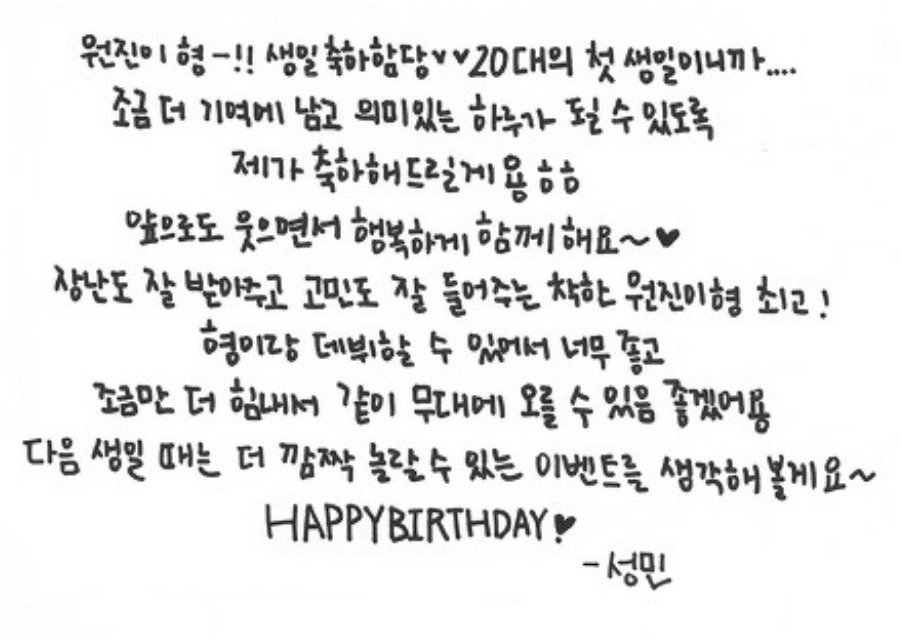 원진이 형-!! 생일 축하함당♥♥20대의 첫 생일이니까....
조금 더 기억에 남고 의미있는 하루가 될 수 있도록
제가 축하해드릴게용ㅎㅎ
앞으로도 웃으면서 행복하게 함께해요~♥
장난도 잘 받아주고 고민도 잘 들어주는 착한 원진이형 최고!
형이랑 데뷔할 수 있어서 너무 좋고
조금만 더 힘내서 같이 무대에 오를 수 있음 좋겠어용
다음 생일 때는 더 깜짝 놀랄 수 있는 이벤트를 생각해볼게요~
HAPPYBIRTHDAY♥
-성민